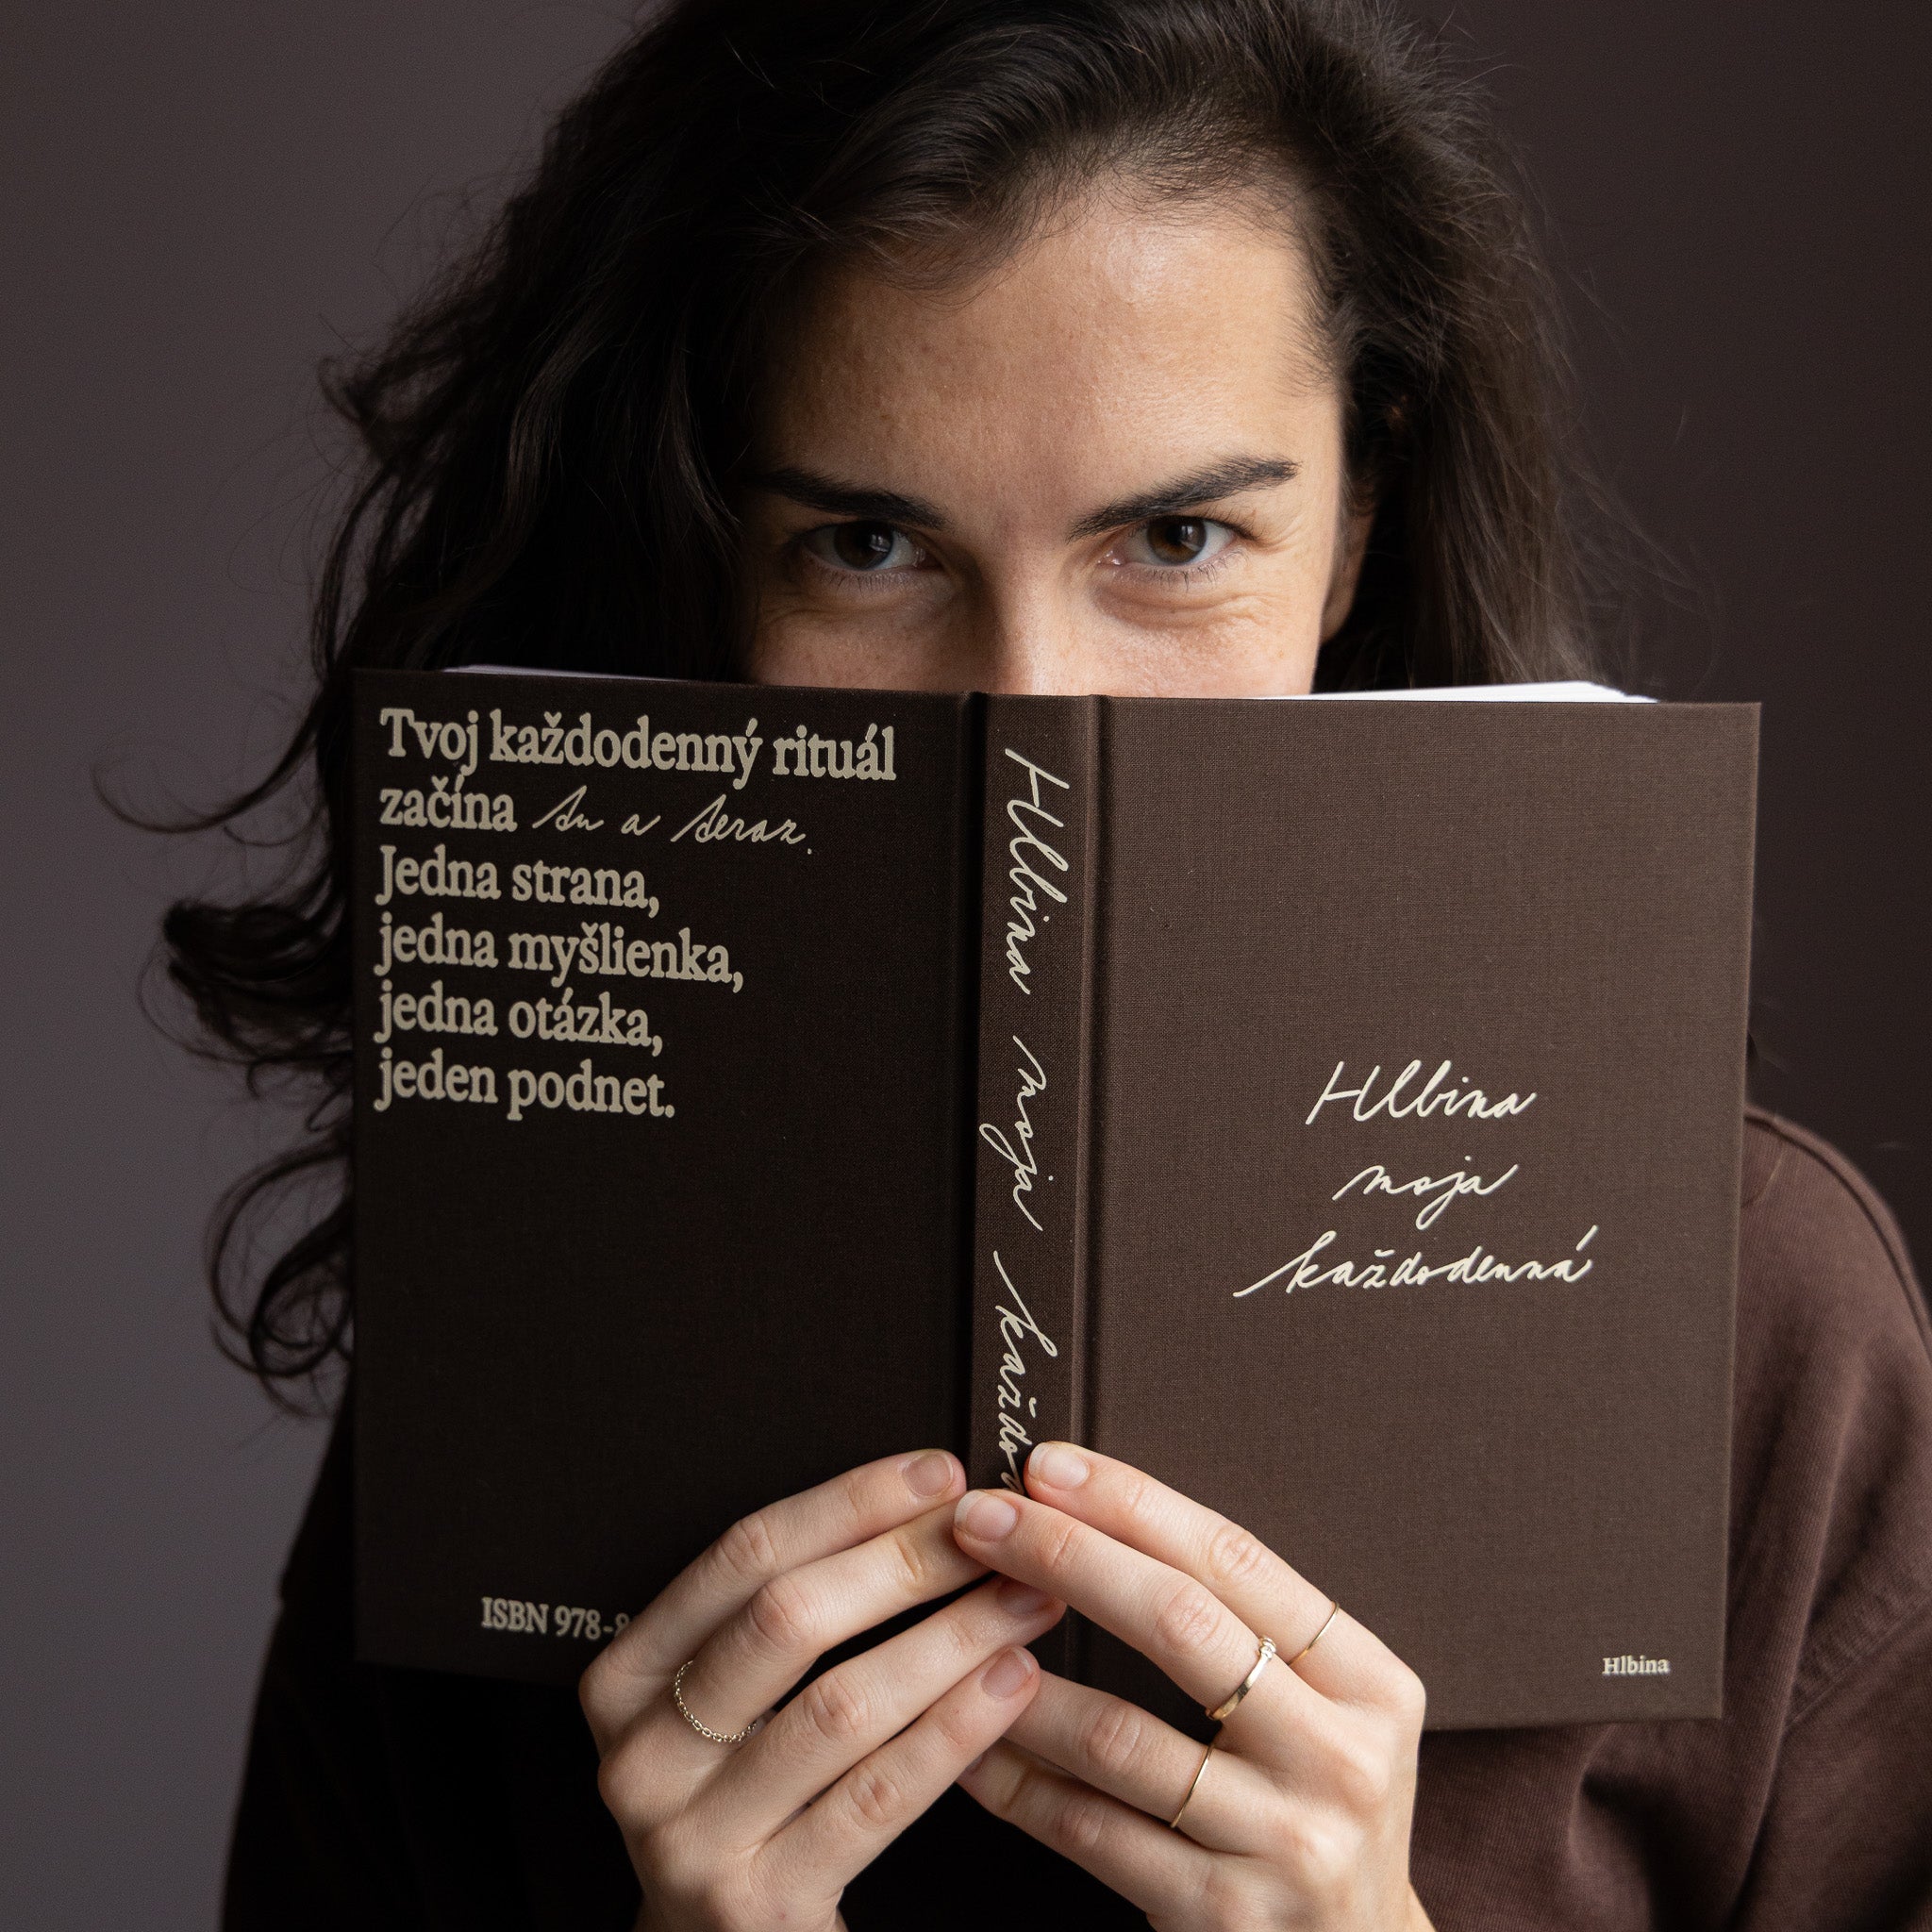 Tvoj každodenný rituál
začína tu a teraz.
Jedna strana,
jedna myšlienka,
jedna otázka,
jeden podnet.
ISBN 978-8
Hlbina moja každod
Hlbina
moja
každodenná
Hlbina